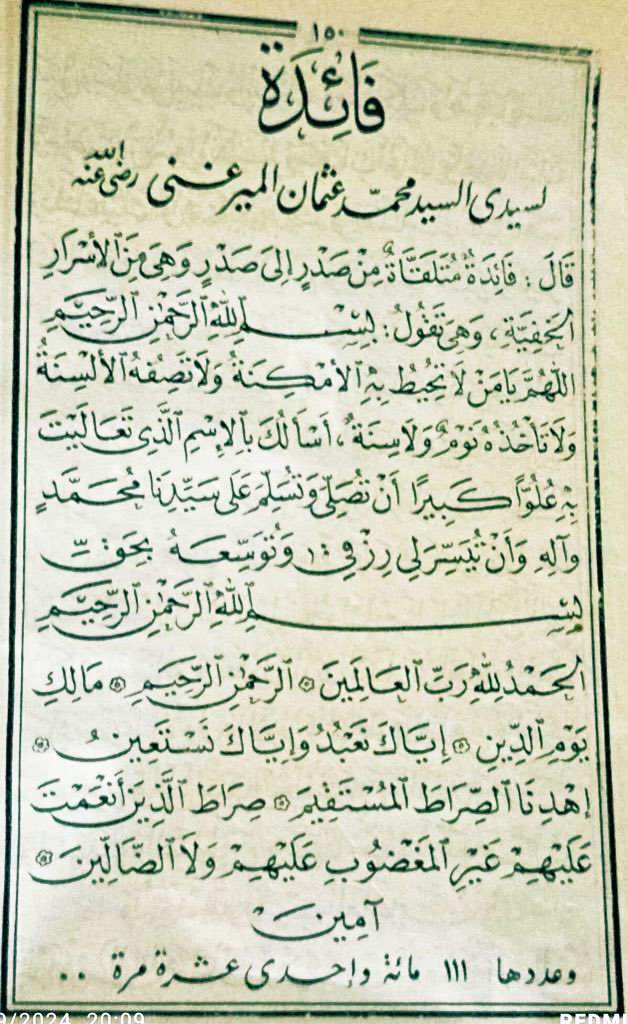 ١٥٠
فَائِدَة
لسيدى السيد محمد عثمان الميرغنى رضى الله عنه
قَالَ : فَائِدَةٌ مُتَلَقَّاةٌ مِنْ صَدْرٍ إِلَى صَدْرٍ وَهِىَ مِنَ ٱلْأَسْرَارِ
ٱلْخَفِيَّةِ ، وَهِىَ تَقُولُ : بِسْمِ ٱللَّهِ ٱلرَّحْمَٰنِ ٱلرَّحِيمِ
ٱللَّهُمَّ يَا مَنْ لَا تُحِيطُ بِهِ ٱلْأَمْكِنَةُ وَلَا تَصِفُهُ ٱلْأَلْسِنَةُ
وَلَا تَأْخُذُهُ نَوْمٌ وَلَا سِنَةٌ ، أَسْأَلُكَ بِٱلْإِسْمِ ٱلَّذِى تَعَالَيْتَ
بِهِ عُلُوًّا كَبِيرًا أَنْ تُصَلِّىَ وَتُسَلِّمَ عَلَى سَيِّدِنَا مُحَمَّدٍ
وَآلِهِ وَأَنْ تُيَسِّرَ لِى رِزْقِى ، وَتُوَسِّعَهُ بِحَقِّ
بِسْمِ ٱللَّهِ ٱلرَّحْمَٰنِ ٱلرَّحِيمِ
ٱلْحَمْدُ لِلَّهِ رَبِّ ٱلْعَالَمِينَ ۞ ٱلرَّحْمَٰنِ ٱلرَّحِيمِ ۞ مَالِكِ
يَوْمِ ٱلدِّينِ ۞ إِيَّاكَ نَعْبُدُ وَإِيَّاكَ نَسْتَعِينُ ۞
إِهْدِنَا ٱلصِّرَاطَ ٱلْمُسْتَقِيمَ ۞ صِرَاطَ ٱلَّذِينَ أَنْعَمْتَ
عَلَيْهِمْ غَيْرِ ٱلْمَغْضُوبِ عَلَيْهِمْ وَلَا ٱلضَّالِّينَ ۞
آمِين
وعددها ١١١ مائة وإحدى عشرة مرة . .
9/2024 20:09
REDMI